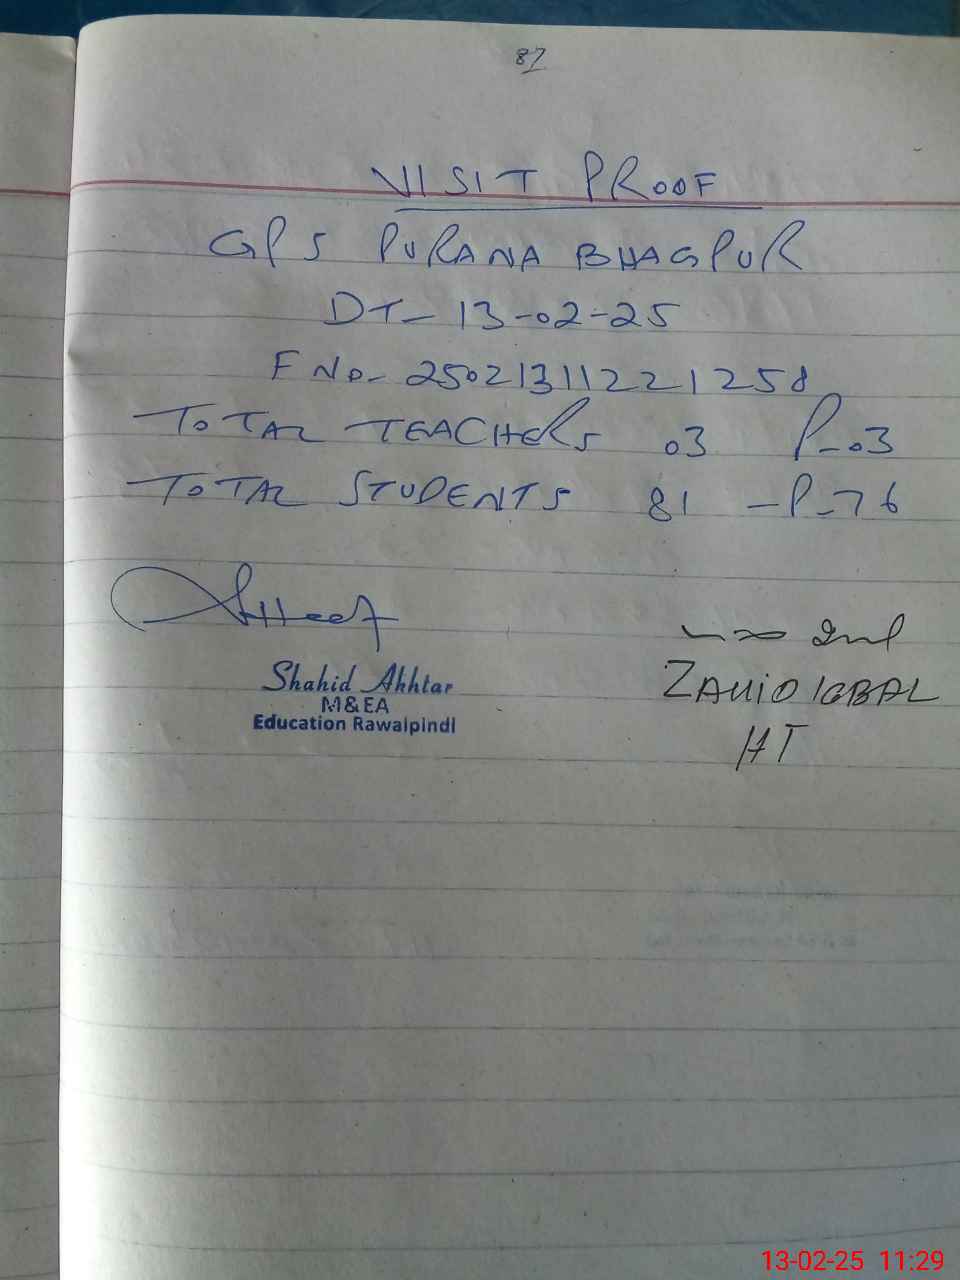 87
VISIT PROOF
GPS PURANA BHAGPUR
DT- 13-02-25
F No- 25021311221258
TOTAL TEACHERS 03 P-03
TOTAL STUDENTS 81 -P-76
Shahid Akhtar
M&EA
Education Rawalpindi
ZAHID IQBAL
HT
13-02-25 11:29